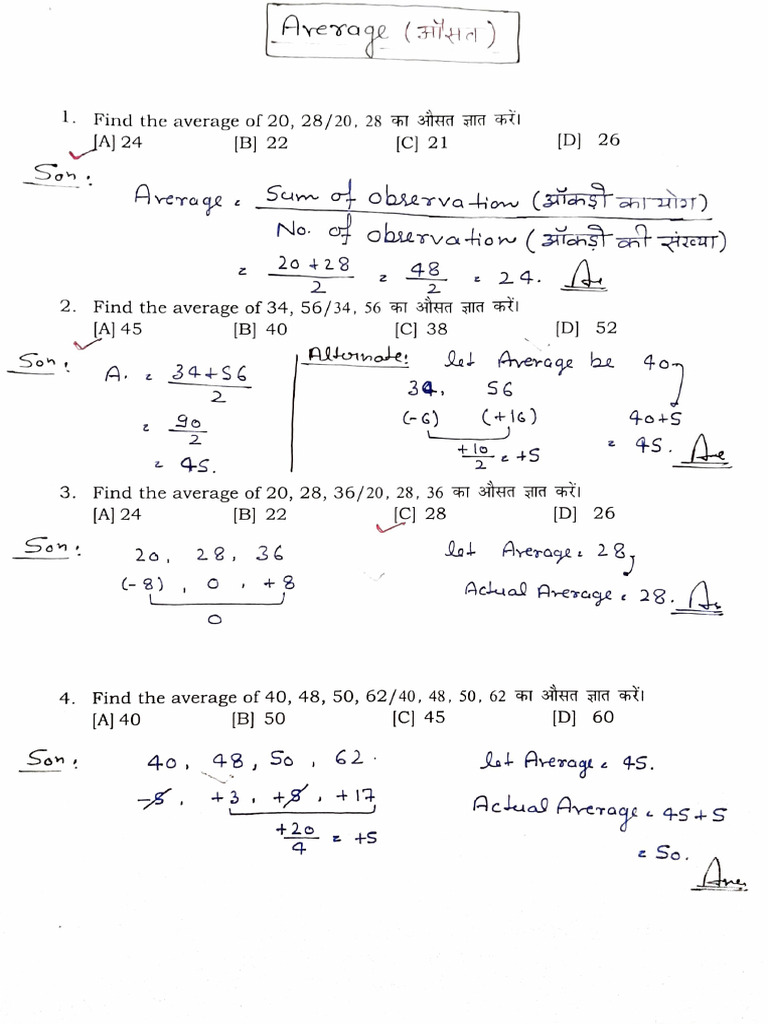 Average (औसत)
1. Find the average of 20, 28/20, 28 का औसत ज्ञात करें।
[A] 24 [B] 22 [C] 21 [D] 26
Son:
Average = Sum of observation (आँकड़ो का योग)
No. of observation (आँकड़ो की संख्या)
= 20+28/2 = 48/2 = 24. Ans
2. Find the average of 34, 56/34, 56 का औसत ज्ञात करें।
[A] 45 [B] 40 [C] 38 [D] 52
Son: A. = 34+56/2
= 90/2
= 45.
Alternate: let Average be 40
34, 56
(-6) (+16) 40+5
+10/2 = +5 = 45. Ans
3. Find the average of 20, 28, 36/20, 28, 36 का औसत ज्ञात करें।
[A] 24 [B] 22 [C] 28 [D] 26
Son: 20, 28, 36 let Average = 28,
(-8), 0, +8 Actual Average = 28. Ans
0
4. Find the average of 40, 48, 50, 62/40, 48, 50, 62 का औसत ज्ञात करें।
[A] 40 [B] 50 [C] 45 [D] 60
Son: 40, 48, 50, 62. let Average = 45.
-5, +3, +5, +17 Actual Average = 45+5
+20/4 = +5 = 50.
Ans